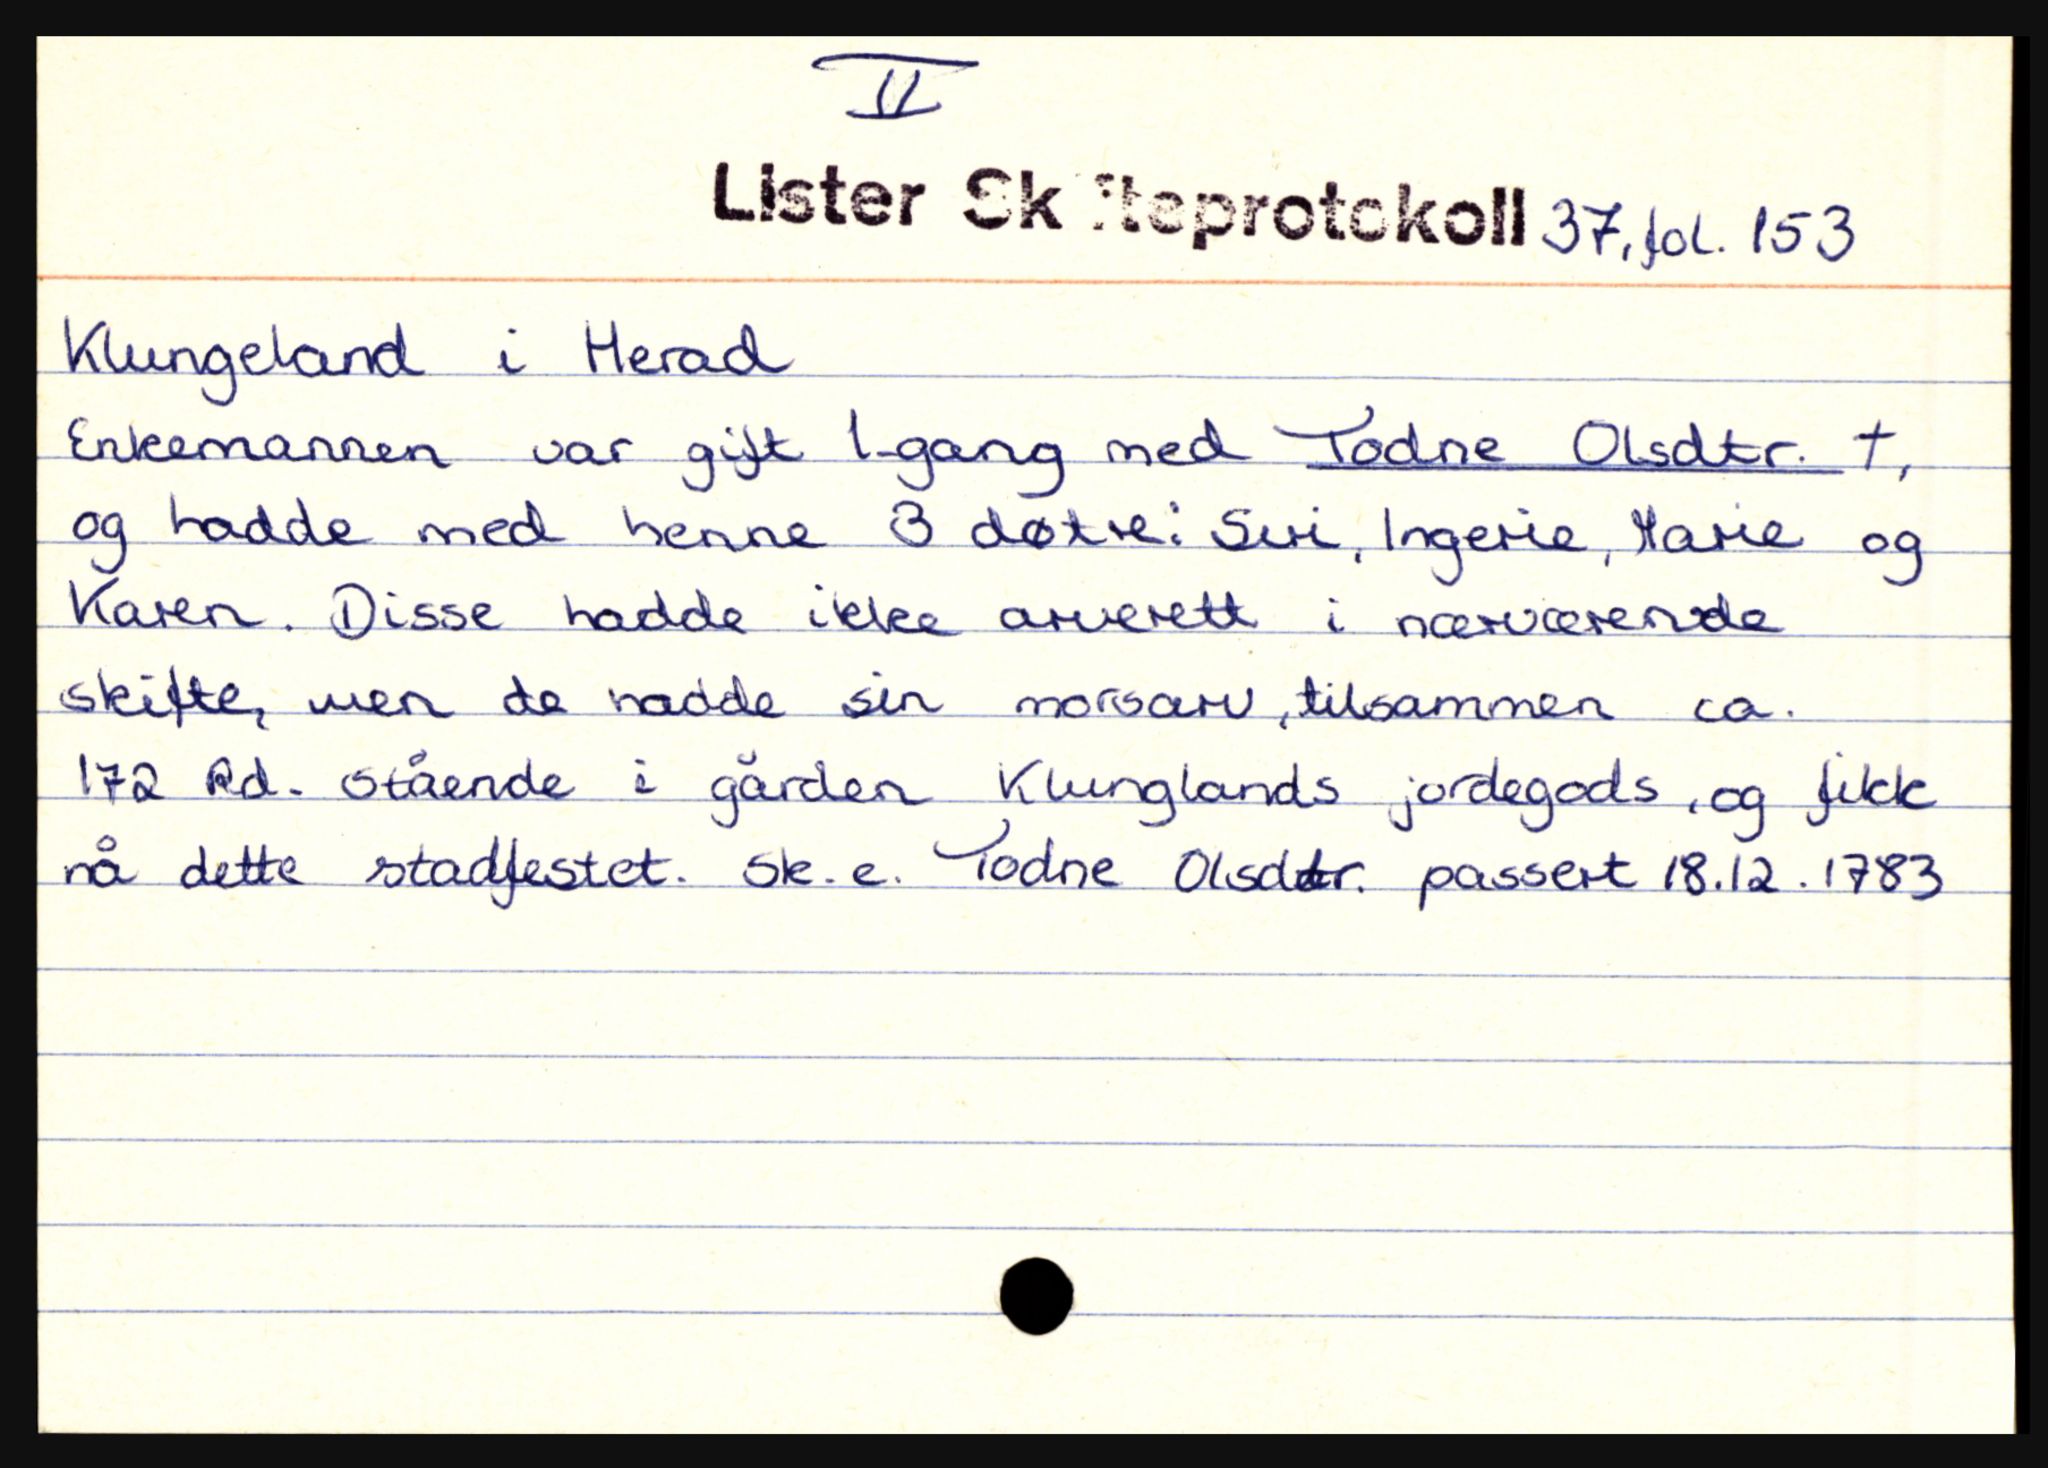 II
Lister Skifteprotokoll 37, fol. 153
Klungeland i Herad
Enkemannen var gift 1.gang med Todne Olsdtr. †,
og hadde med henne 3 døtre: Siri, Ingerie, Marie og
Karen. Disse hadde ikke arverett i nærværende
skifte, men de hadde sin morsarv, tilsammen ca.
172 Rd. stående i gården Klunglands jordegods, og fikk
nå dette stadfestet. Sk. e. Todne Olsdtr. passert 18.12.1783